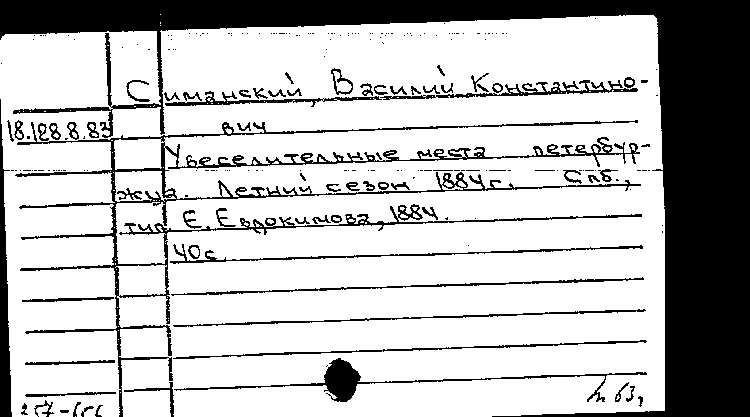 Симанский, Василий Константино-
18.128.8.83 вич
Увеселительные места петербур-
жца. Летний сезон 1884 г. Спб.,
тип. Е. Евдокимова, 1884.
40 с